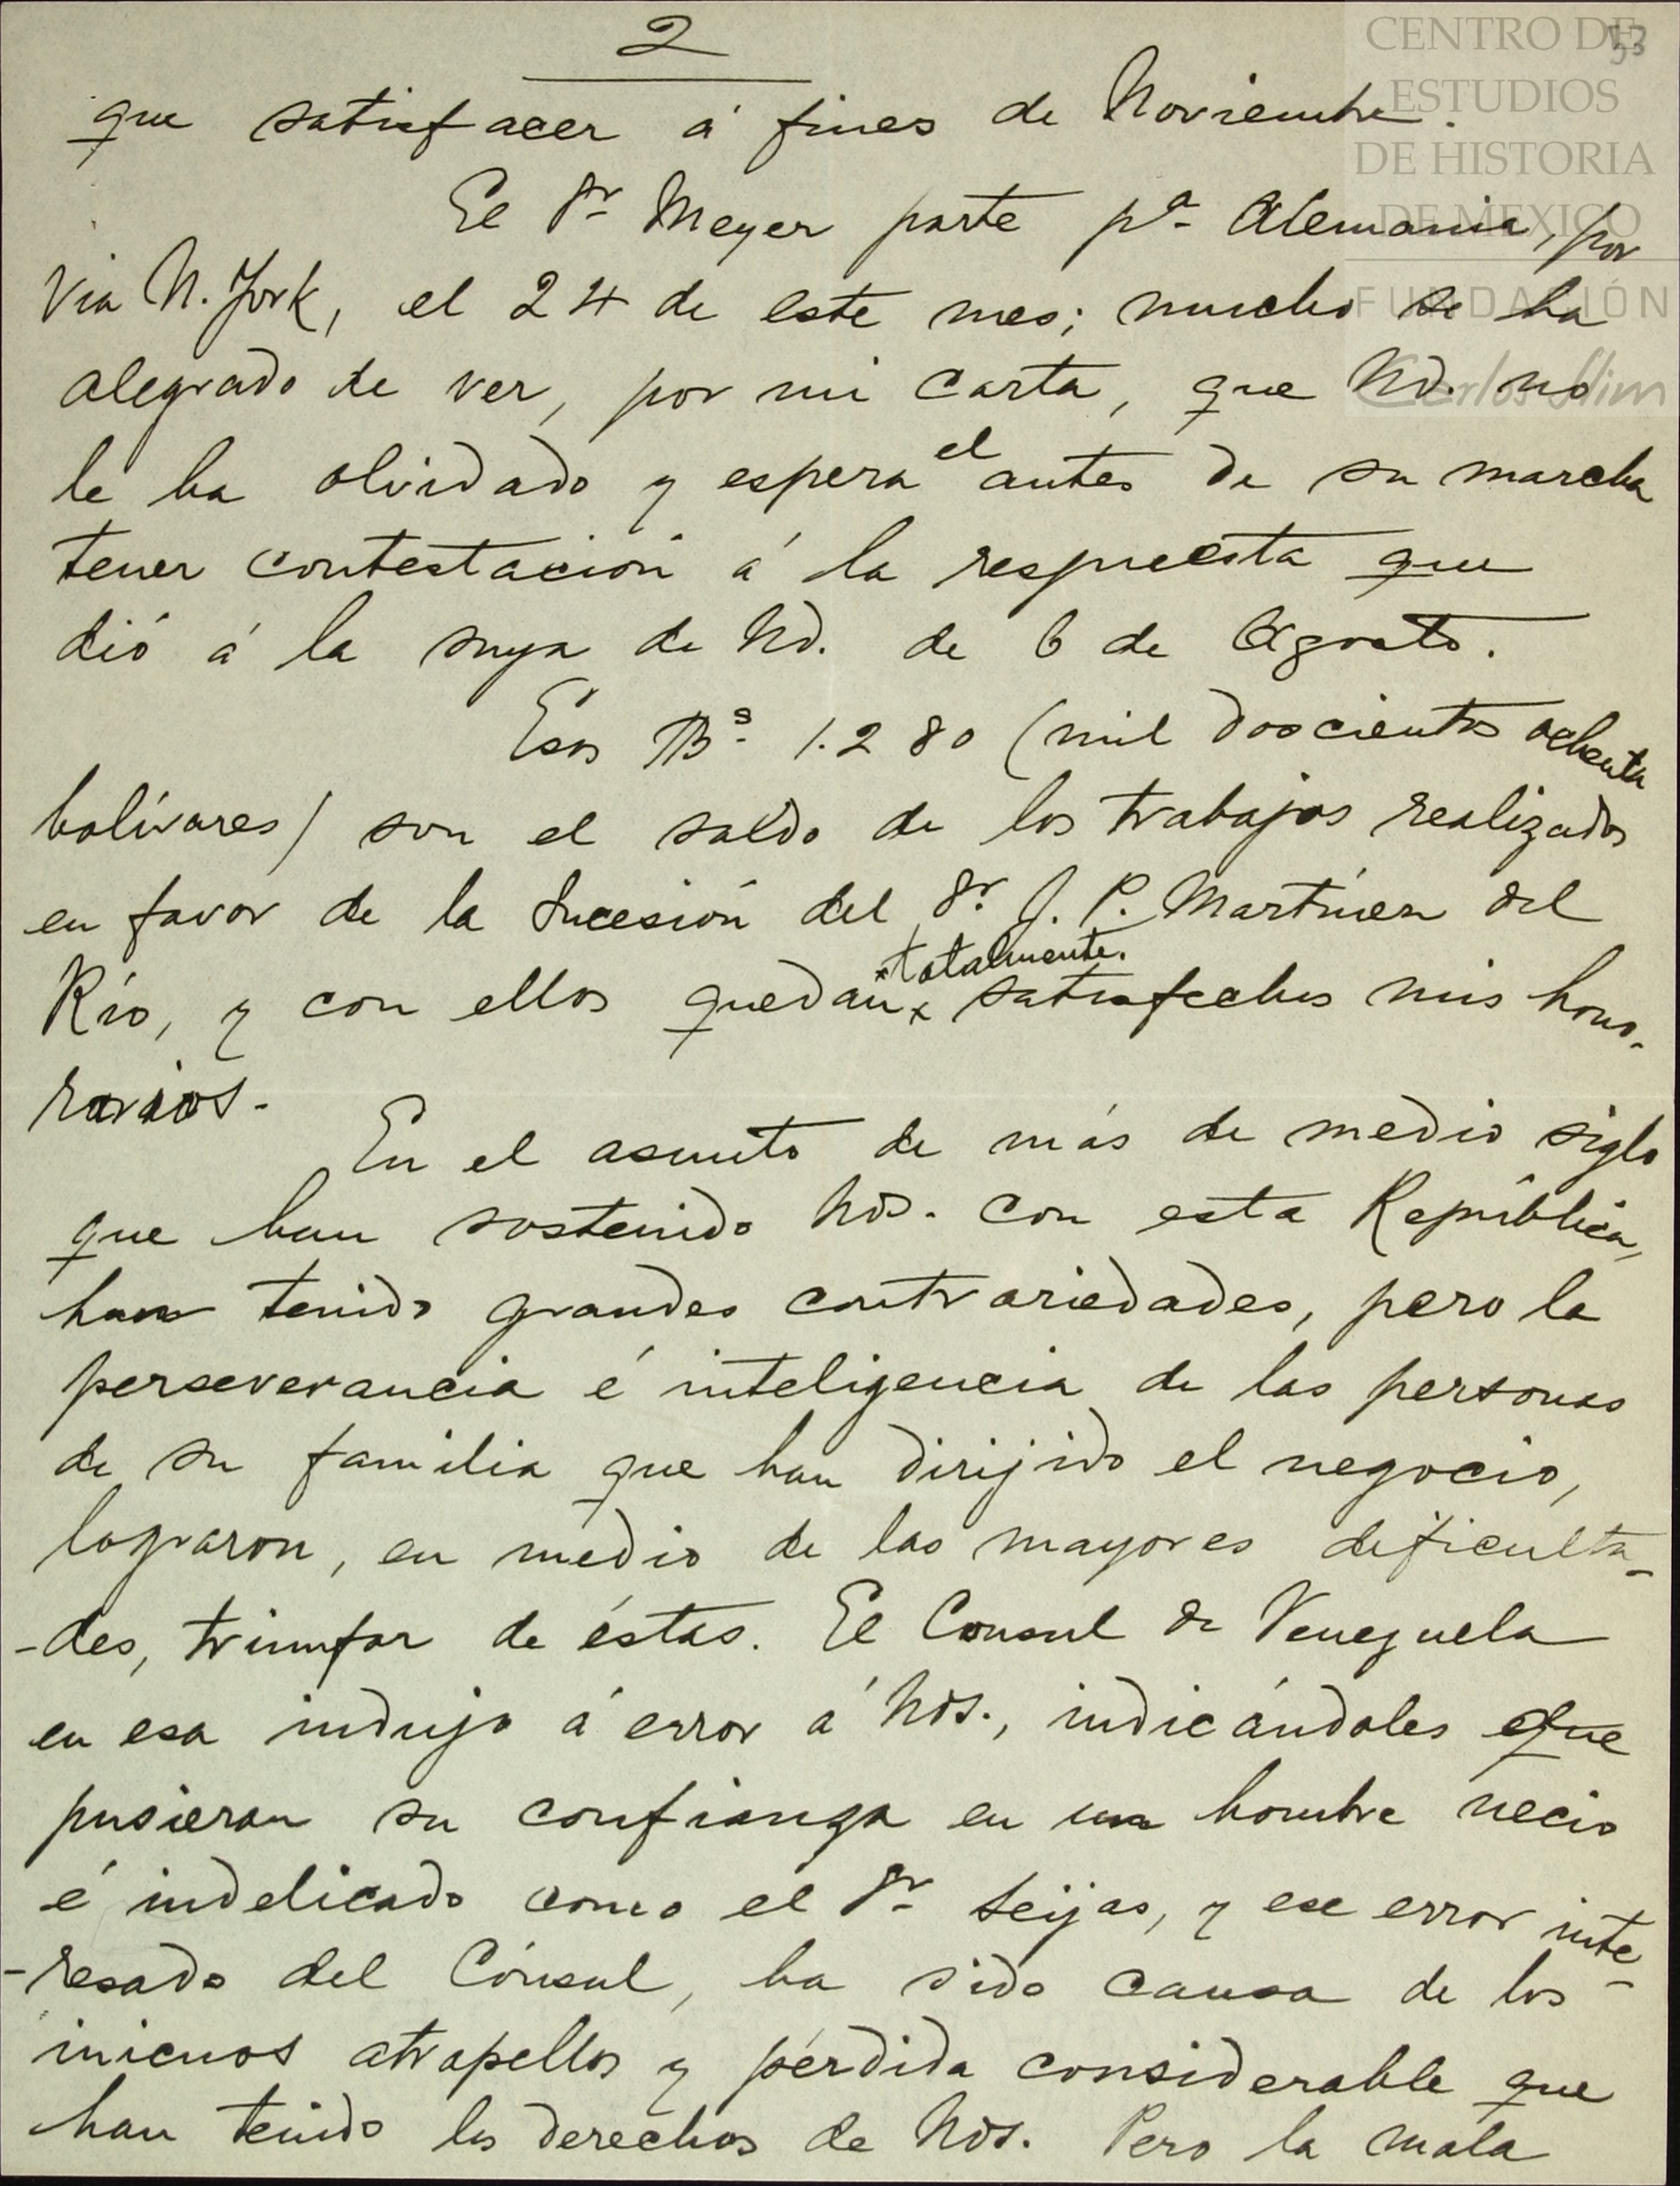 2
53
CENTRO DE
ESTUDIOS
DE HISTORIA
DE MEXICO
FUNDACIÓN
Carlos Slim
que satisfacer á fines de Noviembre.
El Sr Meyer parte pa Alemania, por
via N. York, el 24 de este mes; mucho se ha
alegrado de ver, por mi carta, que Ud. no
le ha olvidado y espera el antes de su marcha
tener contestación á la respuesta que
dió á la suya de Ud. de 6 de Agosto.
Esos Bs 1.280 (mil doscientos ochenta
bolívares) son el saldo de los trabajos realizados
en favor de la Sucesión del Sr. J. P. Martínez del
Río, y con ellos quedan x totalmente. satisfechos mis hono-
rarios.-
En el asunto de más de medio siglo
que han sostenido Uds. con esta República,
han tenido grandes contrariedades, pero la
perseverancia é inteligencia de las personas
de su familia que han dirijido el negocio,
lograron, en medio de las mayores dificulta-
-des, triunfar de éstas. El Consul de Venezuela
en esa indujo á error á Uds., indicándoles que
pusieran su confianza en un hombre necio
é indelicado como el Sr Seijas, y ese error inte-
-resado del Cónsul, ha sido causa de los
inicuos atropellos y pérdida considerable que
han tenido los derechos de Uds. Pero la mala